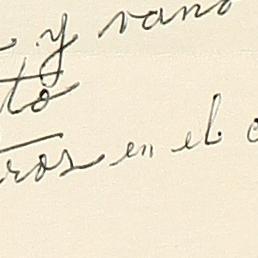 y vano
to
ros en el